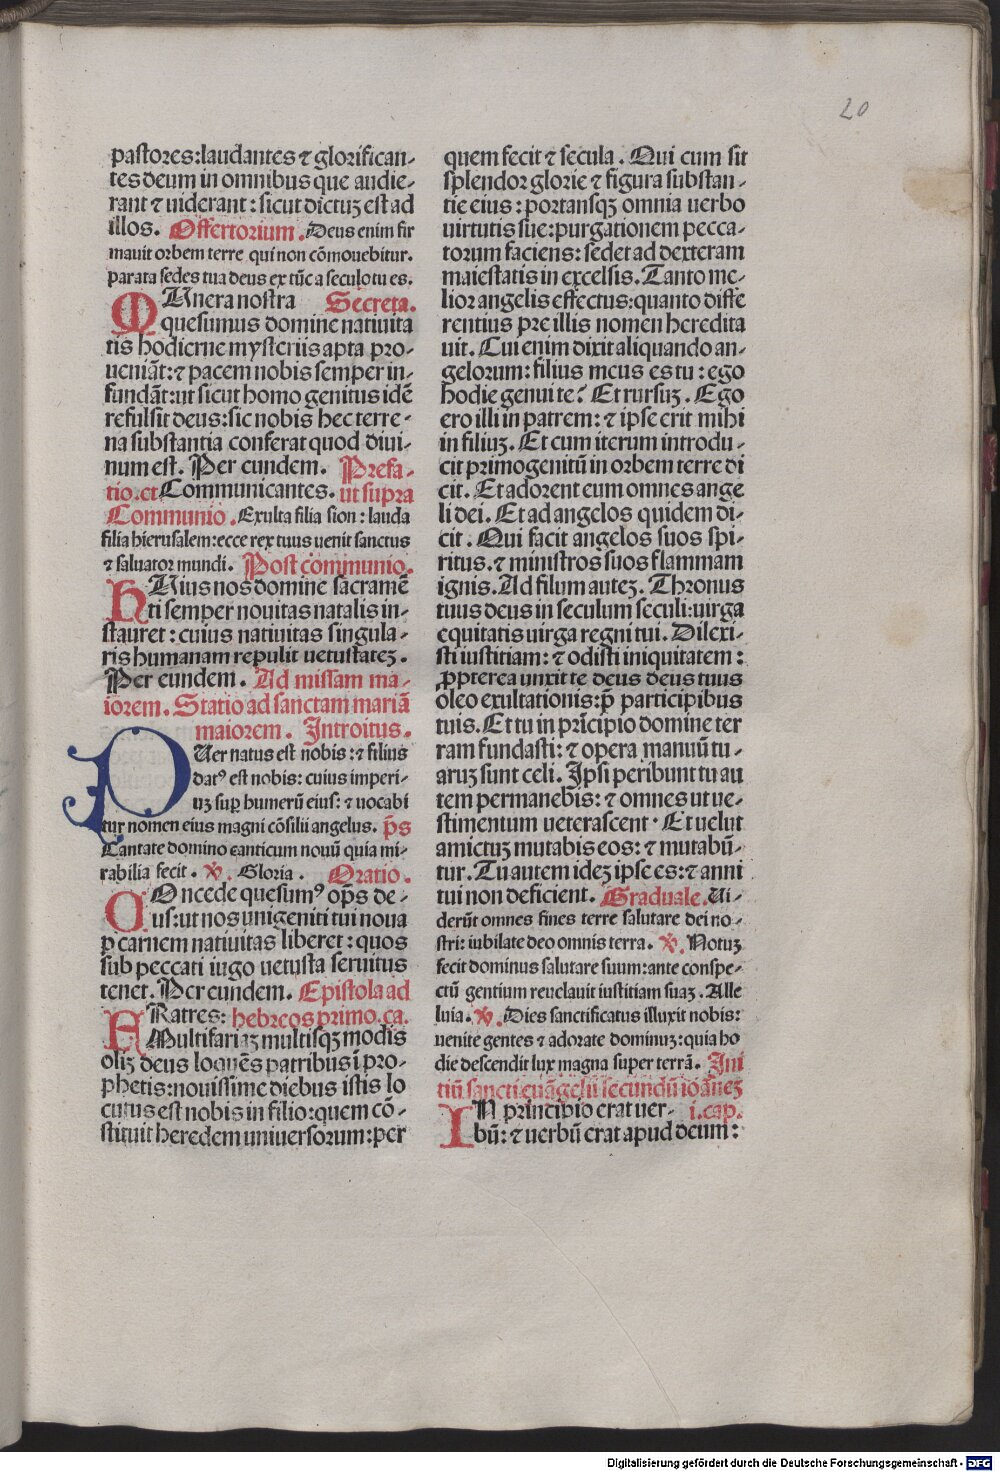 20
pastores:laudantes ⁊ glorifican-
tes deum in omnibus que audie-
rant ⁊ uiderant: sicut dictuꝫ est ad
illos. Offertorium. Deus enim fir
mauit orbem terre qui non cōmouebitur.
parata sedes tua deus ex tūc a seculo tu es.
MUnera nostra Secreta.
quesumus domine natiuita
tis hodierne mysteriis apta pro-
ueniāt: ⁊ pacem nobis semper in-
fundāt: ut sicut homo genitus idē
refulsit deus: sic nobis hec terre-
na substantia conferat quod diui-
num est. Per eundem. Prefa-
tio. et Communicantes. ut supra
Communio. Exulta filia sion: lauda
filia hierusalem: ecce rex tuus uenit sanctus
⁊ saluator mundi. Post cōmunio.
HUius nos domine sacramē
ti semper nouitas natalis in-
stauret: cuius natiuitas singula-
ris humanam repulit uetustateꝫ.
Per eundem. Ad missam ma-
iorem. Statio ad sanctam mariā
maiorem. Introitus.
PUer natus est nobis: ⁊ filius
datꝰ est nobis: cuius imperi-
uꝫ suꝑ humerū eius: ⁊ uocabi
tur nomen eius magni cōsilii angelus. p̄s
Cantate domino canticum nouū quia mi-
rabilia fecit. ℣. Gloria. Oratio.
COncede quesumꝰ op̄s de-
us: ut nos unigeniti tui noua
ꝑ carnem natiuitas liberet: quos
sub peccati iugo uetusta seruitus
tenet. Per eundem. Epistola ad
FRatres: hebreos primo. ca.
Multifariaꝫ multisqꝫ modis
oliꝫ deus loquēs patribus ī pro-
phetis: nouissime diebus istis lo
cutus est nobis in filio: quem cō-
stituit heredem uniuersorum: per
quem fecit ⁊ secula. Qui cum sit
splendor glorie ⁊ figura substan-
tie eius: portansqꝫ omnia uerbo
uirtutis sue: purgationem pecca-
torum faciens: sedet ad dexteram
maiestatis in excelsis. Tanto me-
lior angelis effectus: quanto diffe
rentius pre illis nomen heredita
uit. Cui enim dixit aliquando an-
gelorum: filius meus es tu: ego
hodie genui te? Et rursuꝫ. Ego
ero illi in patrem: ⁊ ipse erit mihi
in filiuꝫ. Et cum iterum introdu-
cit primogenitū in orbem terre di
cit. Et adorent eum omnes ange
li dei. Et ad angelos quidem di-
cit. Qui facit angelos suos spi-
ritus. ⁊ ministros suos flammam
ignis. Ad filum auteꝫ. Thronus
tuus deus in seculum seculi: uirga
equitatis uirga regni tui. Dilexi-
sti iustitiam: ⁊ odisti iniquitatem:
ꝓpterea unxit te deus deus tuus
oleo exultationis: p̄ participibus
tuis. Et tu in prīcipio domine ter
ram fundasti: ⁊ opera manuū tu-
aruꝫ sunt celi. Ipsi peribunt tu au
tem permanebis: ⁊ omnes ut ue-
stimentum ueterascent. Et uelut
amictuꝫ mutabis eos: ⁊ mutabū-
tur. Tu autem ideꝫ ipse es: ⁊ anni
tui non deficient. Graduale. Ui-
derūt omnes fines terre salutare dei no-
stri: iubilate deo omnis terra. ℣. Notuꝫ
fecit dominus salutare suum: ante conspe-
ctū gentium reuelauit iustitiam suaꝫ. Alle
luia. ℣. Dies sanctificatus illuxit nobis:
uenite gentes ⁊ adorate dominuꝫ: quia ho
die descendit lux magna super terrā. Ini
tiū sancti euāgelii secundū ioāneꝫ
IN principio erat uer- i. cap.
bū: ⁊ uerbū erat apud deum:
Digitalisierung gefördert durch die Deutsche Forschungsgemeinschaft - DFG